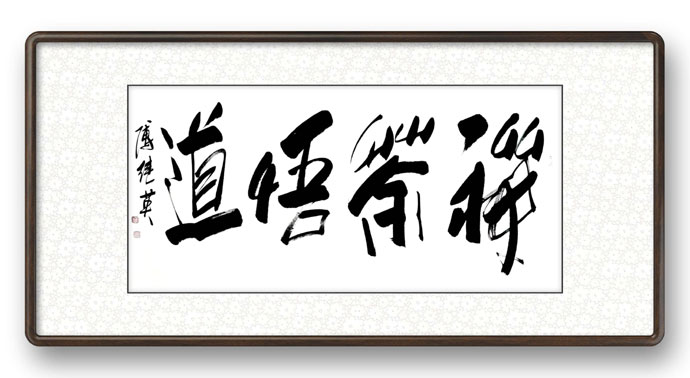 禅茶悟道
傅继英